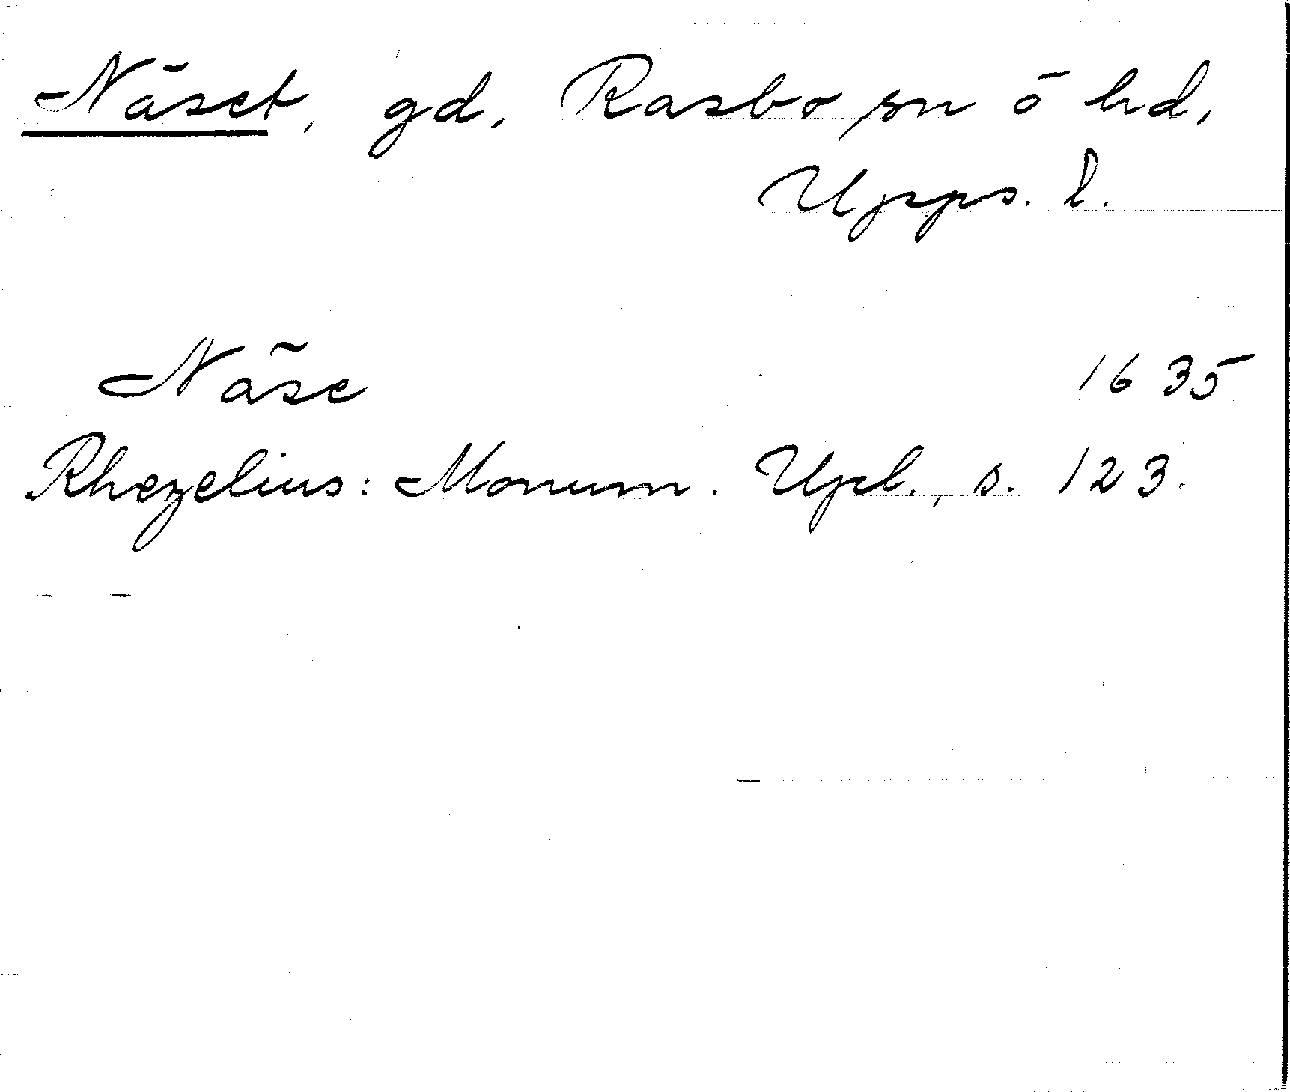 Näset, gd, Rasbo sn o hd,
Upps. l.
Näse 1635
Rhezelius: Monum. Upl., s. 123.